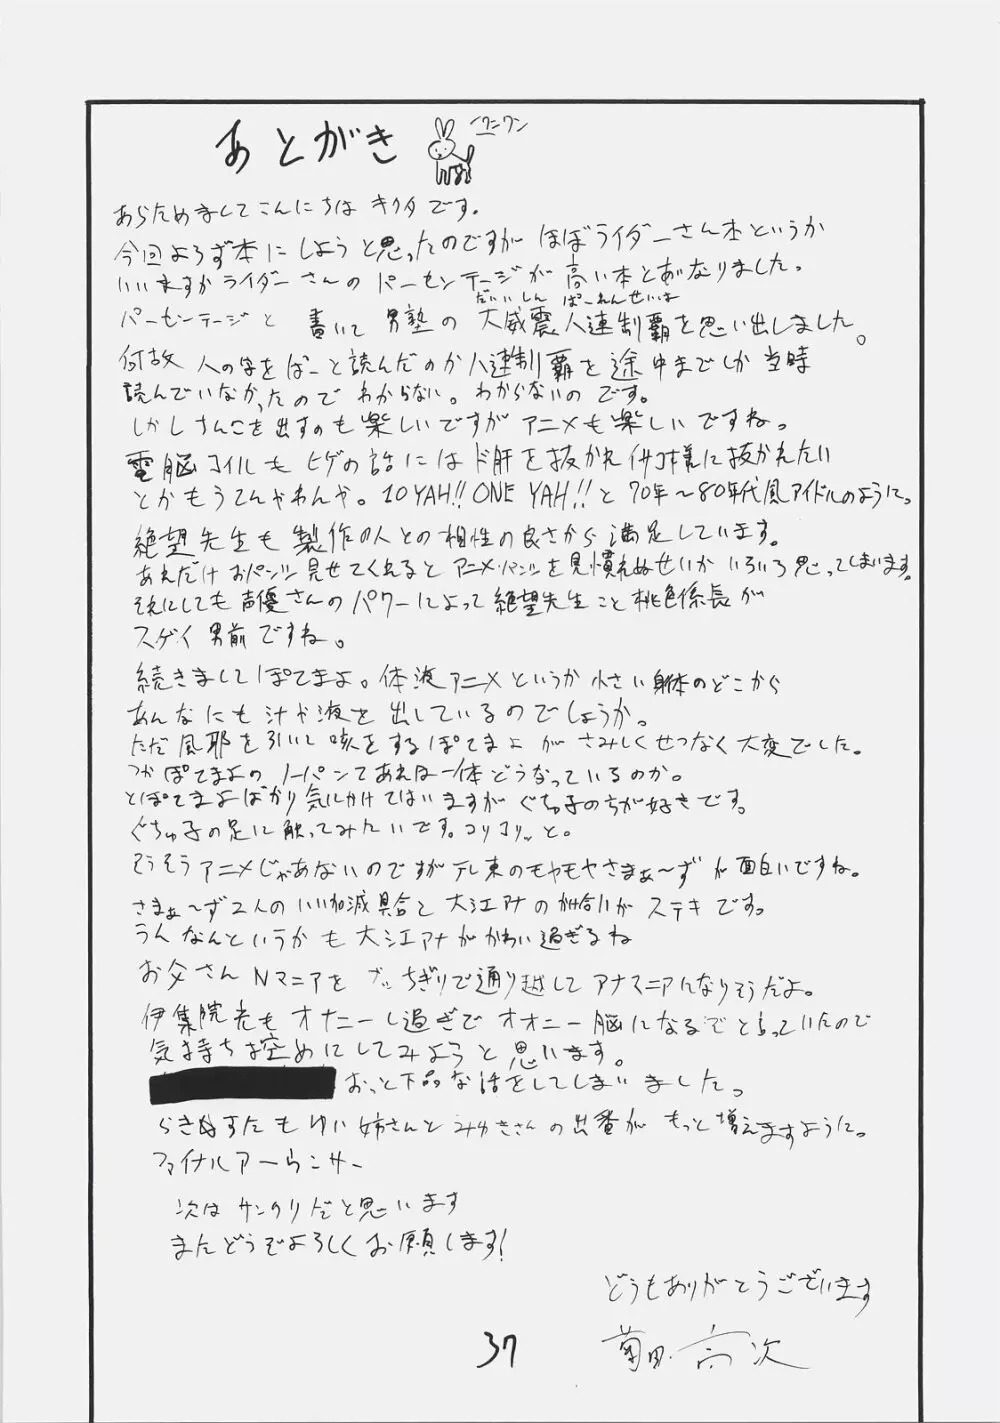 あとがき
ワンワン
あらためましてこんにちは キクタです。
今回よろず本にしようと思ったのですが ほぼライダーさん本というか
いいますかライダーさんの パーセンテージが高い本とあいなりました。
パーセンテージと 書いて 男塾の 大威震八連制覇を思い出しました。
だいいしん ぱーれんせいは
何故 八のほをぱーと読んだのか 八連制覇を途中までしか当時
読んでいなかったので わからない。わからないのです。
しかし まんこを出すのも楽しいですが アニメも楽しいですねっ
電脳コイルも ヒゲの話には ド肝を抜かれ イサコ様に抜かれたい
とかもうてんやわんや。10YAH!! ONE YAH!! と 70年〜80年代風アイドルのように。
絶望先生も 製作の人との相性の良さから 満足しています。
あれだけ おパンツ見せてくれると アニメ・パンツを見慣れぬせいか いろいろ思ってしまいます。
それにしても声優さんのパワーによって 絶望先生こと 桃色係長が
スゲイ 男前ですね。
続きまして ぽてまよ。体液アニメというか 小さい身体のどこから
あんなにも 汁や液を 出しているのでしょうか。
ただ 風邪を引いて 咳をする ぽてまよ が さみしく せつなく 大変でした。
つか ぽてまよの ノーパンであれは 一体どうなっているのか。
とぽてまよばかり気にかけてはいますが ぐちゅ子のちが好きです。
ぐちゅ子の足に 触ってみたいです。コリコリッと。
そうそう アニメじゃあないのですが テレ東のモヤモヤさまぁ〜ず が 面白いですね。
さまぁ〜ず2人の いい加減具合と 大江アナの が ステキです。
うん なんというかも 大江アナが かわい過ぎるね
お父さん Nマニアを ブッちぎりで通り越して アナマニアになりそうだよ。
伊集院光も オナニーし過ぎで オオニー脳になるぞと言っていたので
気持ち控めにしてみようと思います。
おっと下品な話をしてしまいましたっ
らき☆すたも ゆい姉さんと みゆきさんの 出番が もっと増えますように。
ファイナルアーウンサー
次は サンクリだと思います
またどうぞよろしくお願します！
どうもありがとうございます
菊田 高次
37